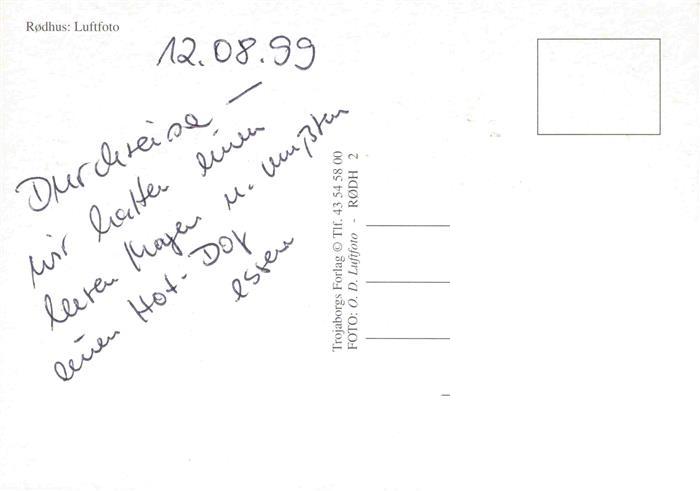 Rødhus: Luftfoto
12.08.99
Durchreise –
wir hatten einen
leeren Magen u. mußten
einen Hot-Dog
essen
Trojaborgs Forlag © Tlf. 43 54 58 00
FOTO: O. D. Luftfoto - RØDH 2